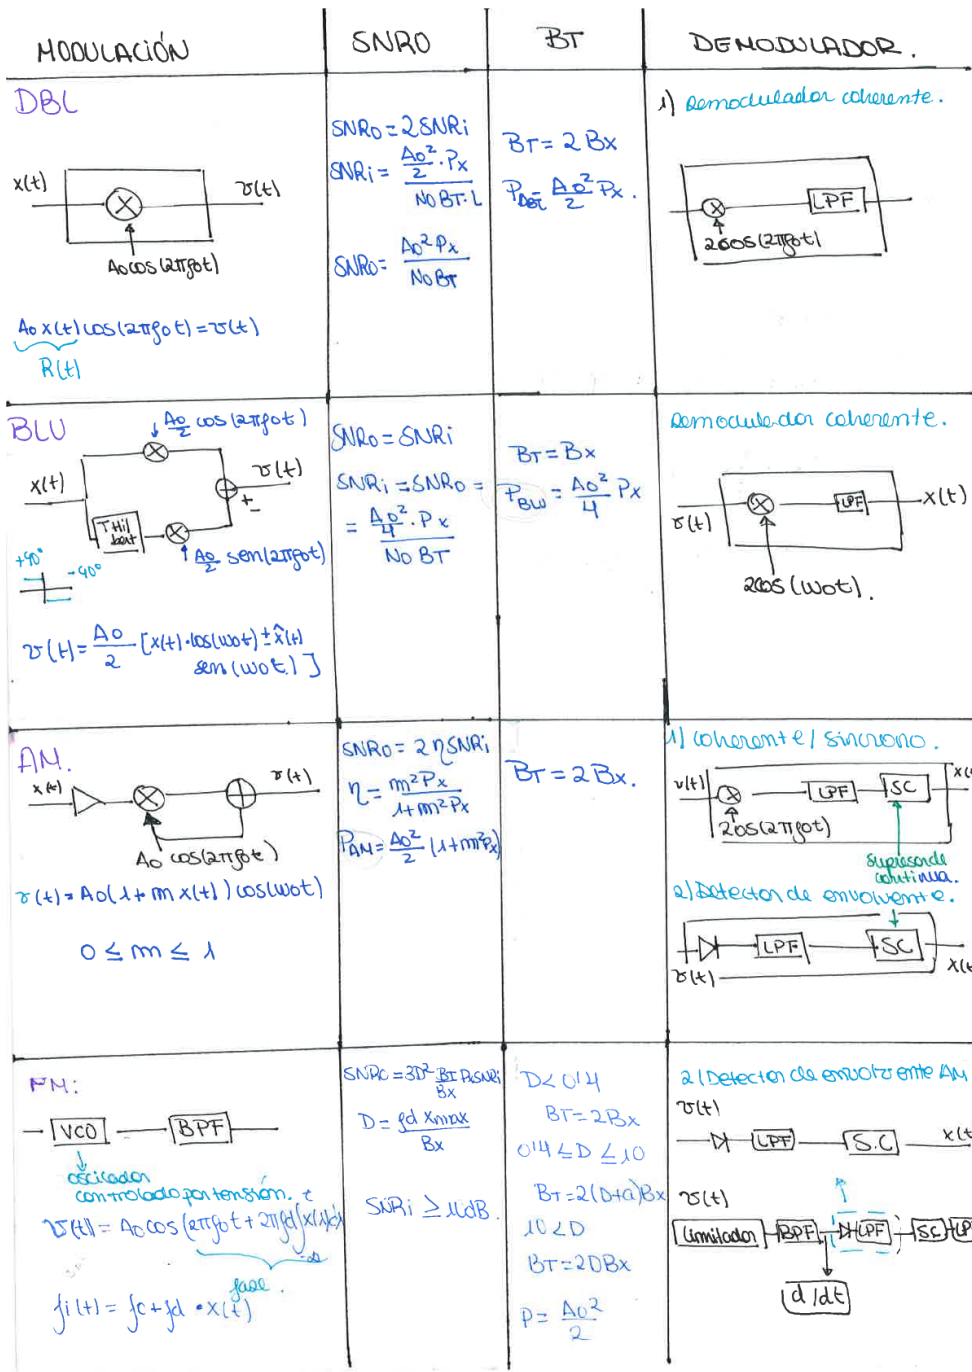 MODULACIÓN
SNRO
BT
DEMODULADOR.
DBL
x(t)
v(t)
Ao cos(2πfot)
Ao x(t) cos(2πfot) = v(t)
R(t)
SNRo = 2SNRi
SNRi = Ao²/2 · Px / No BT · L
SNRo = Ao² Px / No BT
BT = 2 Bx
PDBL = Ao²/2 Px.
1) Demodulador coherente.
LPF
2cos(2πfot)
BLU
Ao/2 cos(2πfot)
x(t)
v(t)
+
-
THil
bert
Ao/2 sen(2πfot)
+90°
-90°
v(t) = Ao/2 [x(t)·cos(wot) ± x̂(t)
sen(wot)]
SNRo = SNRi
SNRi = SNRo =
= Ao²/4 · Px / No BT
BT = Bx
PBLU = Ao²/4 Px
Demodulador coherente.
v(t)
LPF
x(t)
2cos(wot).
AM.
x(t)
v(t)
Ao cos(2πfot)
v(t) = Ao(1 + m x(t)) cos(wot)
0 ≤ m ≤ 1
SNRo = 2ηSNRi
η = m²Px / 1+m²Px
PAM = Ao²/2 (1+m²Px)
BT = 2Bx.
1) coherente / síncrono.
v(t)
LPF
SC
2cos(2πfot)
supresor de
continua.
2) Detector de envolvente.
LPF
SC
v(t)
FM:
VCO
BPF
oscilador
controlado por tensión.
v(t) = Ao cos(2πfot + 2πfd∫x(λ)dλ
t
-∞
fase.
fi(t) = fc + fd · x(t)
SNRo = 3D² BT/Bx Px SNRi
D = fd xmax / Bx
SNRi ≥ 10dB.
D < 0'4
BT = 2Bx
0'4 ≤ D ≤ 10
BT = 2(D+a)Bx
10 < D
BT = 2DBx
P = Ao²/2
2) Detector de envolvente AM
v(t)
LPF
S.C
v(t)
Limitador
BPF
LPF
SC
d/dt